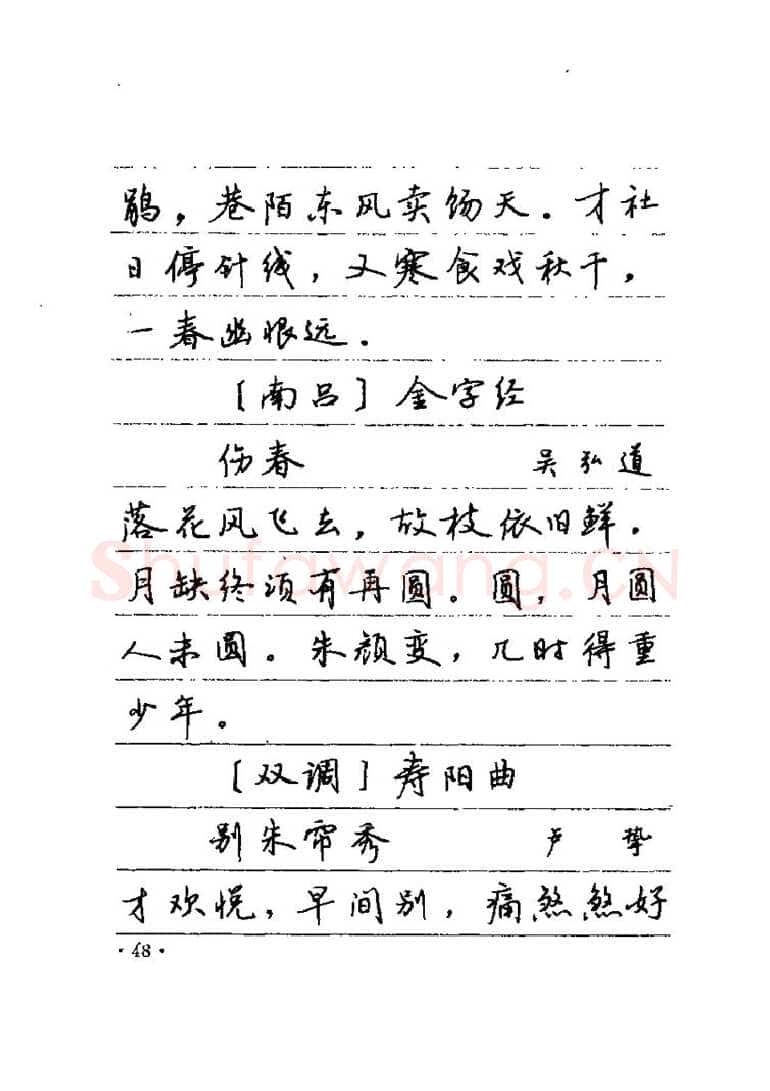 鹃，巷陌东风卖饧天。才社
日停针线，又寒食戏秋千，
一春幽恨远。
［南吕］金字经
伤春 吴弘道
落花风飞去，故枝依旧鲜．
月缺终须有再圆。圆，月圆
人未圆。朱颜变，几时得重
少年。
［双调］寿阳曲
别朱帘秀 卢挚
才欢悦，早间别，痛煞煞好
·48·
Shufawang.CN